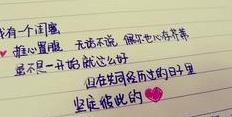 我有一个闺蜜
♥ 推心置腹 无话不说 偶尔也心存芥蒂
虽不是一开始就这么好
但在共同经历过的日子里
坚定彼此的♥